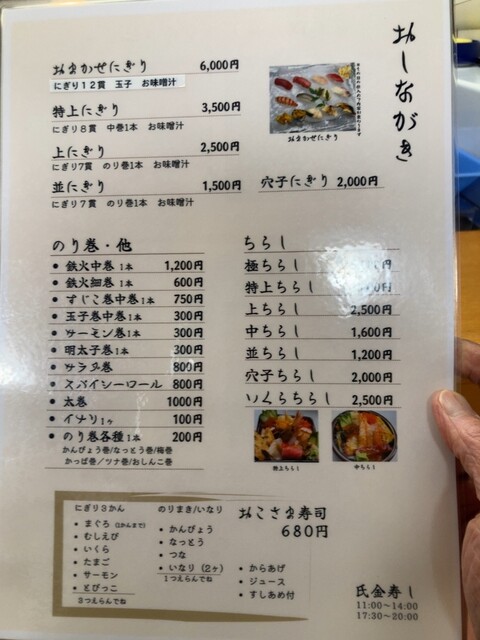 おしながき
おまかせにぎり 6,000円
にぎり12貫 玉子 お味噌汁
特上にぎり 3,500円
にぎり8貫 中巻1本 お味噌汁
上にぎり 2,500円
にぎり7貫 のり巻1本 お味噌汁
並にぎり 1,500円
にぎり7貫 のり巻1本 お味噌汁
おまかせにぎり
穴子にぎり 2,000円
のり巻・他
• 鉄火中巻 1本 1,200円
• 鉄火細巻 1本 600円
• すじこ巻中巻 1本 750円
• 玉子巻中巻 1本 300円
• サーモン巻 1本 300円
• 明太子巻 1本 300円
• サラダ巻 800円
• スパイシーロール 800円
• 太巻 1000円
• イナリ 1ヶ 100円
• のり巻各種 1本 200円
かんぴょう巻/なっとう巻/梅巻
かっぱ巻/ツナ巻/おしんこ巻
ちらし
極ちらし 円
特上ちらし 円
上ちらし 2,500円
中ちらし 1,600円
並ちらし 1,200円
穴子ちらし 2,000円
いくらちらし 2,500円
特上ちらし
中ちらし
にぎり3かん
• まぐろ (1かんまで)
• むしえび
• いくら
• たまご
• サーモン
• とびっこ
3つえらんでね
のりまき/いなり
• かんぴょう
• なっとう
• つな
• いなり (2ヶ)
1つえらんでね
おこさま寿司
680円
• からあげ
• ジュース
• すしあめ付
氏金寿し
11:00〜14:00
17:30〜20:00